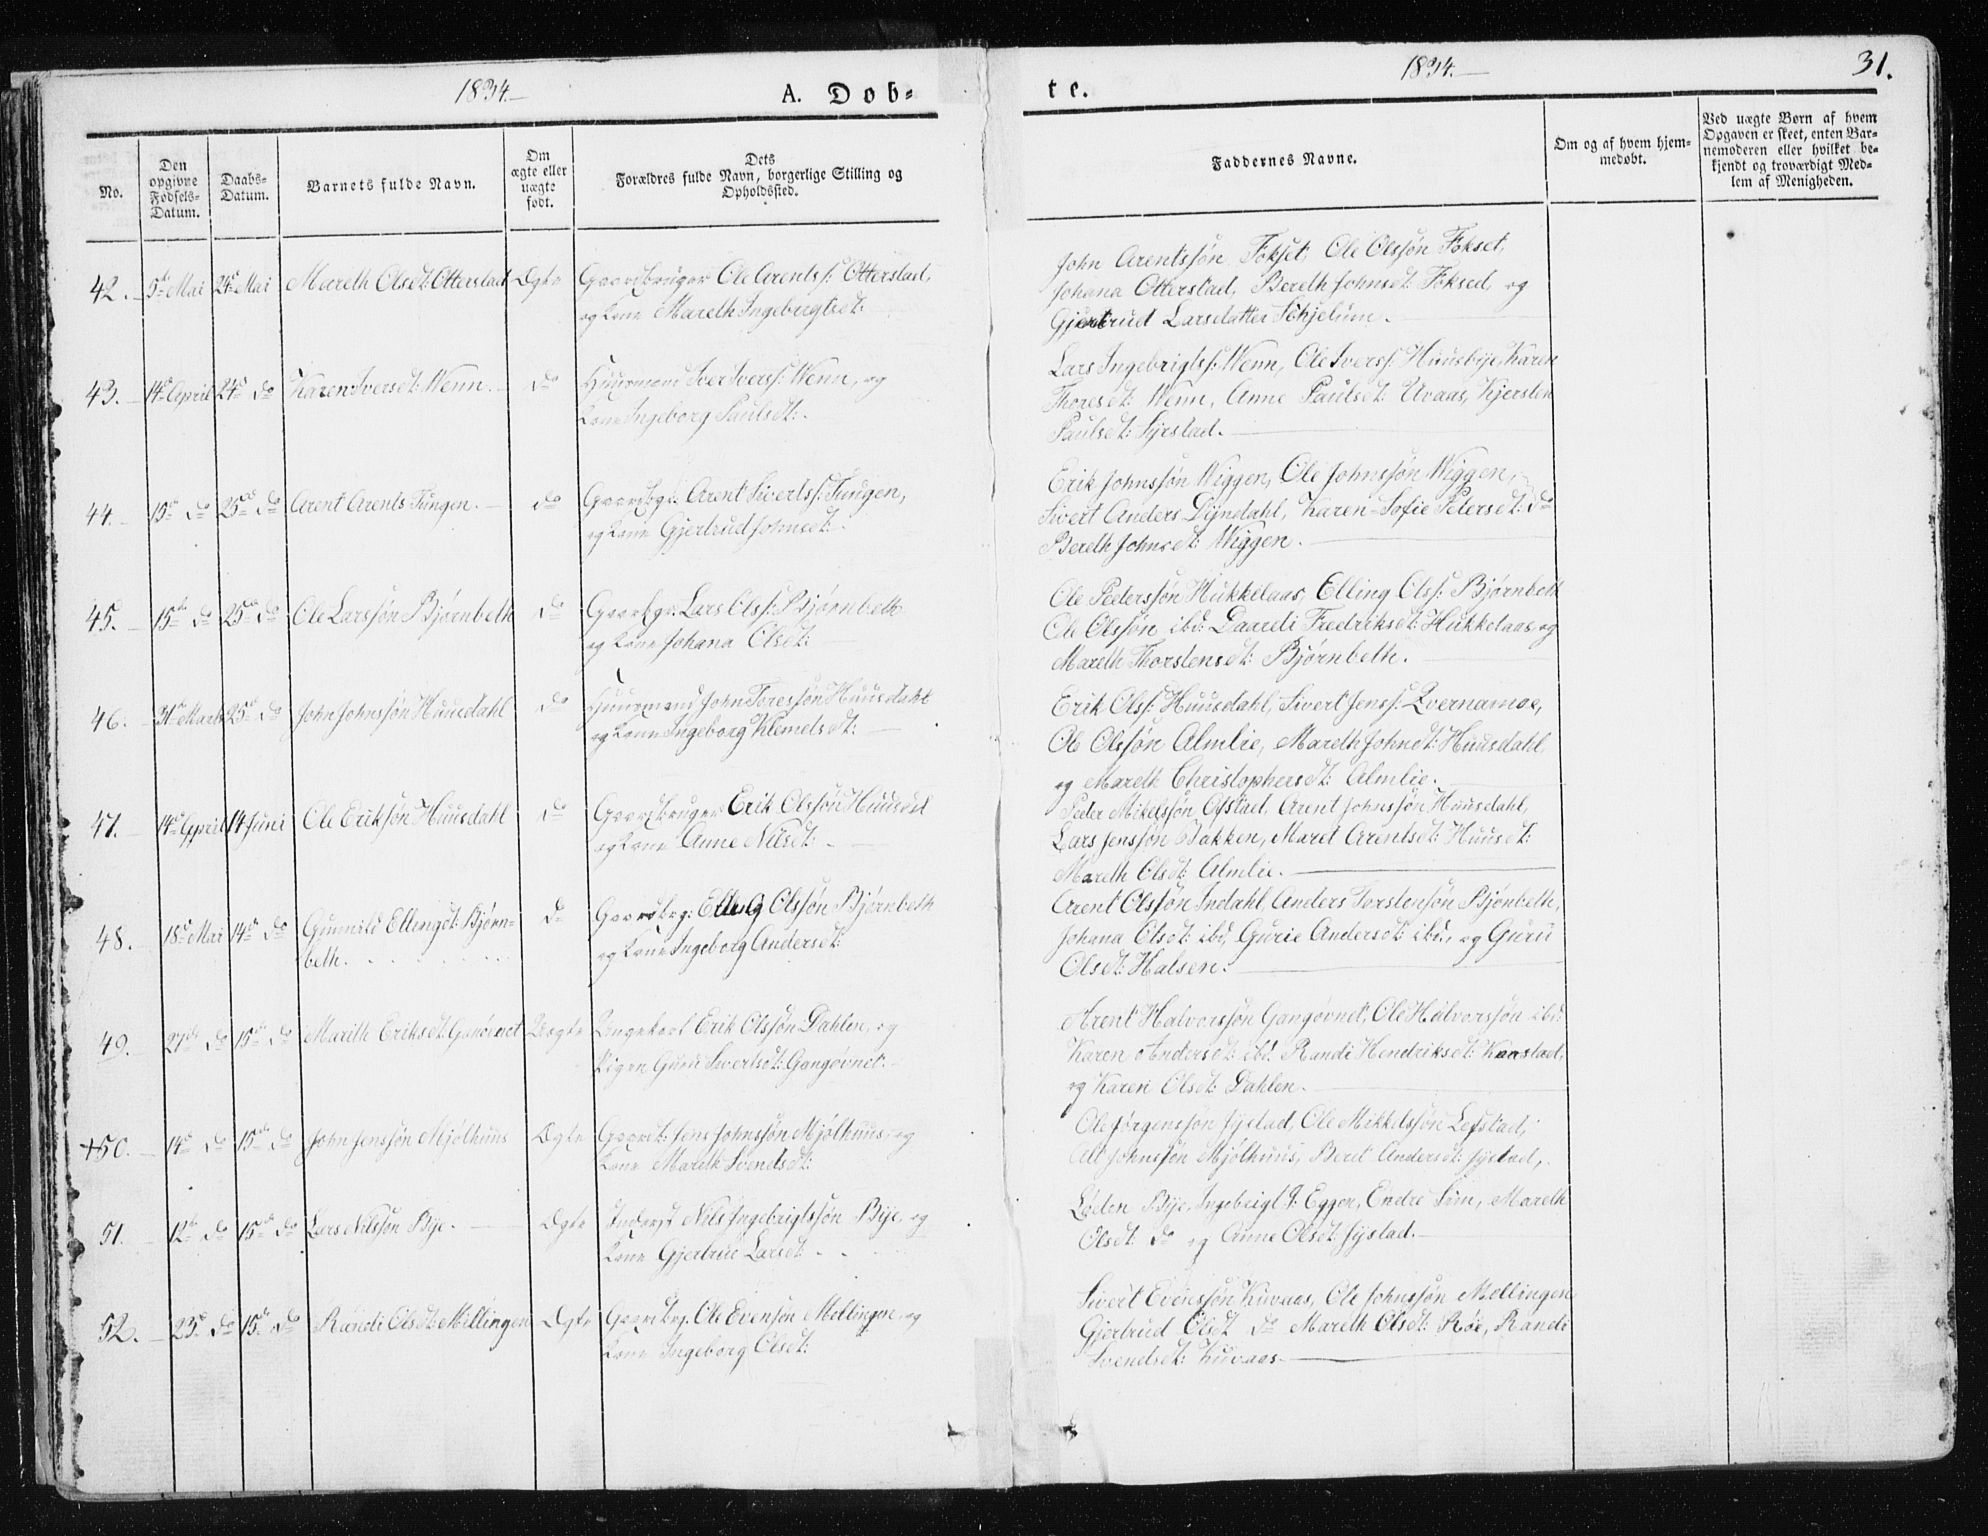 1834.
A. Dob-
te.
1834.
31.
No.
Den opgivne Fødsels-Datum.
Daabs-Datum.
Barnets fulde Navn.
Om ægte eller uægte født.
Dets
Forældres fulde Navn, borgerlige Stilling og
Opholdssted.
Faddernes Navne.
Om og af hvem hjem-
medøbt.
Ved uægte Børn af hvem
Opgaven er skeet, enten Bar-
nemoderen eller hvilket be-
kjendt og troværdigt Med-
lem af Menigheden.
42. 5te Mai 24de Mai Mareth Olsdt: Otterstad Ægte Gaardbruger Ole Arentss: Otterstad,
og Kone Mareth Ingebrigtsdt:
John Arentssøn Fokset, Ole Olssøn Fokset,
Johana Otterstad, Bereth Johnsdt: Foksed, og
Gjertrud Larsdatter Schjelum.
43. 14de April 24de do Karen Iversdt: Wenn. do Huusmand Iver Iverss: Wenn, og
Kone Ingeborg Paulsdt:
Lars Ingebrigtss: Wenn, Ole Iverss: Huusbye, Karen
Thoresdt: Wenn, Anne Paulsdt: Uvaas, Kjersten
Paulsdt: Syrstad.
44. 15de do 25de do Arent Arents Tungen. do Gaardbgr: Arent Sivertss: Tungen,
og Kone Gjertrud Johnsdt:
Erik Johnssøn Wiggen, Ole Johnssøn Wiggen,
Sivert Anders Dyndahl, Karen Sofie Petersdt: do
Bereth Johnsdt: Wiggen.
45. 15de do 25de do Ole Larssøn Bjørnbeth do Gaardbgr: Lars Olss: Bjørnbeth
og Kone Johana Olsdt:
Ole Pederssøn Hukkelaas, Elling Olss: Bjørnbeth
Ole Olssøn ibd: Daaredi Fredriksdt: Hukkelaas, og
Mareth Thorstensdt: Bjørnbeth.
46. 31de Marts 25de do John Johnssøn Huusdahl do Huusmand John Toressøn Huusdahl
og Kone Ingeborg Klemetsdt:
Erik Olss: Huusdahl, Sivert Jenss: Qvernamoe,
Ole Olssøn Almlie, Mareth Johnsdt: Huusdahl
og Mareth Christophersdt: Almlie.
47. 14de April 14 Juni Ole Erikssøn Huusdahl do Gaardbruger Erik Olssøn Huusdal
og Kone Anne Nilsdt:
Peder Mikelssøn Ofstad, Arent Johnssøn Huusdahl,
Lars Jenssøn Bakken, Maret Arentsdt: Huusdt:
Mareth Olsdt: Almlie.
48. 18de Mai 14de do Gunnild Ellingsdt: Bjørn- do Gaardbrg: Elling Olssøn Bjørnbeth
beth.
og Kone Ingeborg Andersdt:
Arent Olssøn Indahl, Anders Torstensøn Bjønbeth,
Johana Olsdt: ibd, Gurie Andersdt: ibd., og Guru
Olsdt: Halsen.
49. 27de do 15de do Marith Eriksdt: Gangøvnet Uægte Ungekarl Erik Olssøn Dahlen, og
Pigen Guru Sivertsdt: Gangøvnet.
Arent Halvorssøn Gangøvnet, Ole Halvorssøn ibd:
Karen Andersdt: ibd. Randi Hendriksdt: Karstad,
og Karen Olsdt: Dahlen.
+50. 14de do 15de do John Jenssøn Mjølhuus Ægte Gaardb: Jens Johnssøn Mjølhuus, og
Kone Mareth Svendsdt:
Ole Jørgenssøn Jystad, Ole Mikkelssøn Lefstad,
Alt Johnssøn Mjølhuus, Beret Andersdt: Jystad,
51. 12te do 15de do Lars Nilssøn Bye. Ægte Inderst Nils Ingebrigtssøn Bye, og
Kone Gjertrue Larsdt:
Loden Bye, Ingebrigt P: Eggen, Endre Siim, Mareth
Olsdt: do og Anne Olsdt: Jystad.
52. 23de do 15de do Randi Olsdt: Mellingen Ægte Gaardbrg. Ole Evensøn Mellingen, og
Kone Ingeborg Olsdt:
Sivert Evenssøn Kuvaas, Ole Johnssøn Mellingen
Gjertrud Olsdt do Mareth Olsdt: Røe, Randi
Svendsdt: Kuvaas.